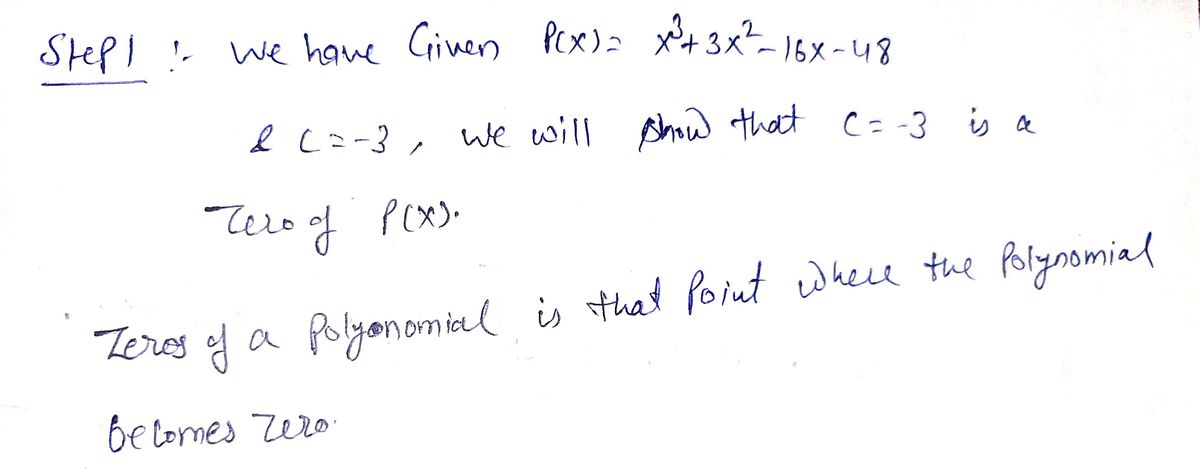 Step 1 :- We have Given P(x) = x³+3x²-16x-48
& C=-3, we will show that C=-3 is a
Zero of P(x).
Zeros of a Polyonomial is that Point where the Polynomial
becomes Zero.